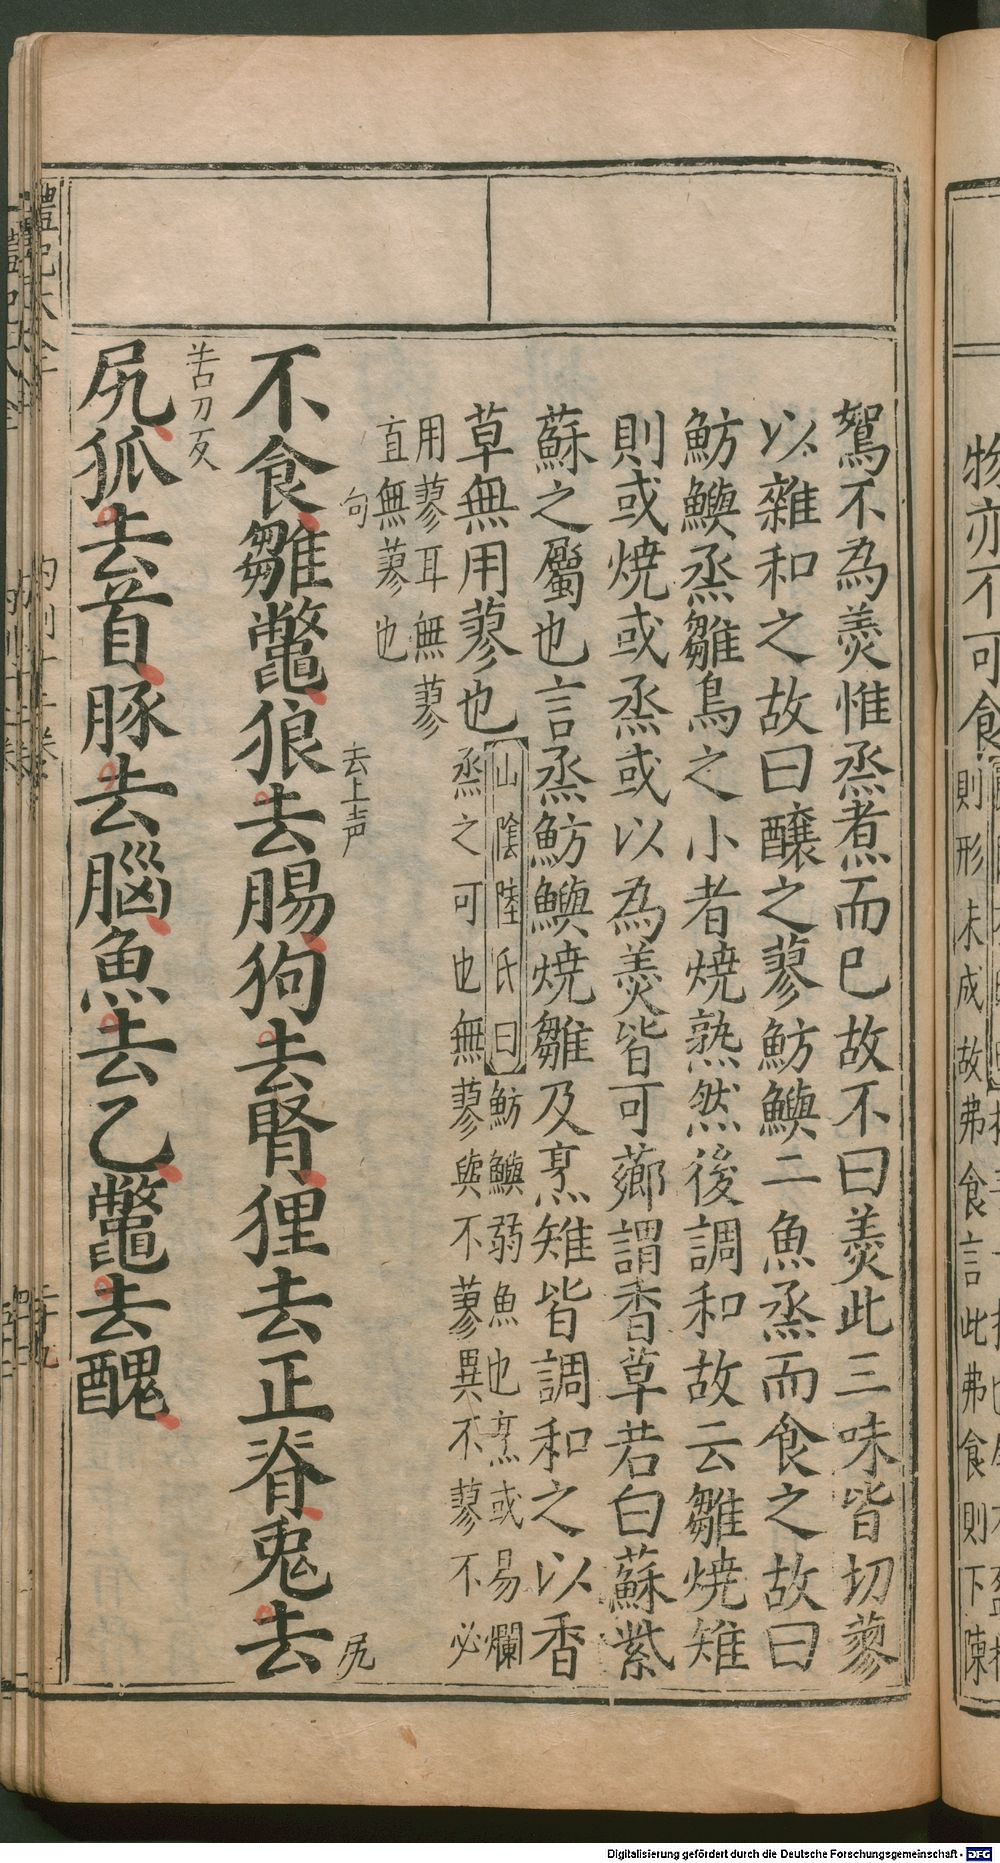 鴽不為羮惟烝煮而巳故不曰羮此三味皆切蓼
以雜和之故曰釀之蓼魴鱮二魚烝而食之故曰
魴鱮烝雛鳥之小者焼熟然後調和故云雛焼雉
則或焼或烝或以為羮皆可薌謂香草若白蘇紫
蘇之屬也言烝魴鱮焼雛及烹雉皆調和之以香
草無用蓼也
山隂陸氏曰魴鱮弱魚也烹或易爛
烝之可也無蓼與不蓼異不蓼不必
用蓼耳無蓼
直無蓼也
句
去上声
尻
不食雛鼈狼去腸狗去腎狸去正脊兎去
苦刀反
尻狐去首豚去腦魚去乙鼈去醜
Digitalisierung gefördert durch die Deutsche Forschungsgemeinschaft - DFG